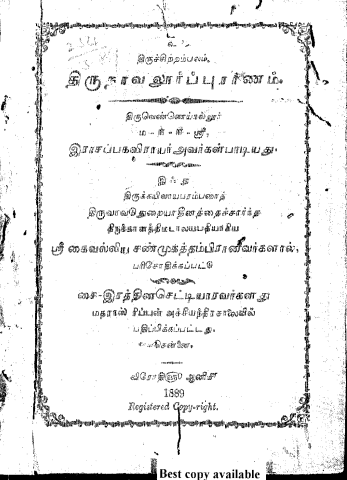 உ
திருச்சிற்றம்பலம்.
திருநாவலூர்ப்புராணம்.
திருவெண்ணெய்நல்லூர்
ம-ள-ள-ஸ்ரீ,
இராசப்பகவிராயர் அவர்கள்பாடியது.
இஃது
திருக்கயிலாயபரம்பரைத்
திருவாவடுதுறையாதீனத்தைச்சார்ந்த
ஸ்ரீ கைவல்லிய சண்முகத்தம்பிரானவர்களால்,
பரிசோதிக்கப்பட்டு
சை-இரத்தினசெட்டியாரவர்களது
மதராஸ் ரிப்பன் அச்சியந்திரசாலையில்
பதிப்பிக்கப்பட்டது.
சென்னை.
விரோதிவரு ஆனிமீ
1889
Registered Copy-right.
Best copy available